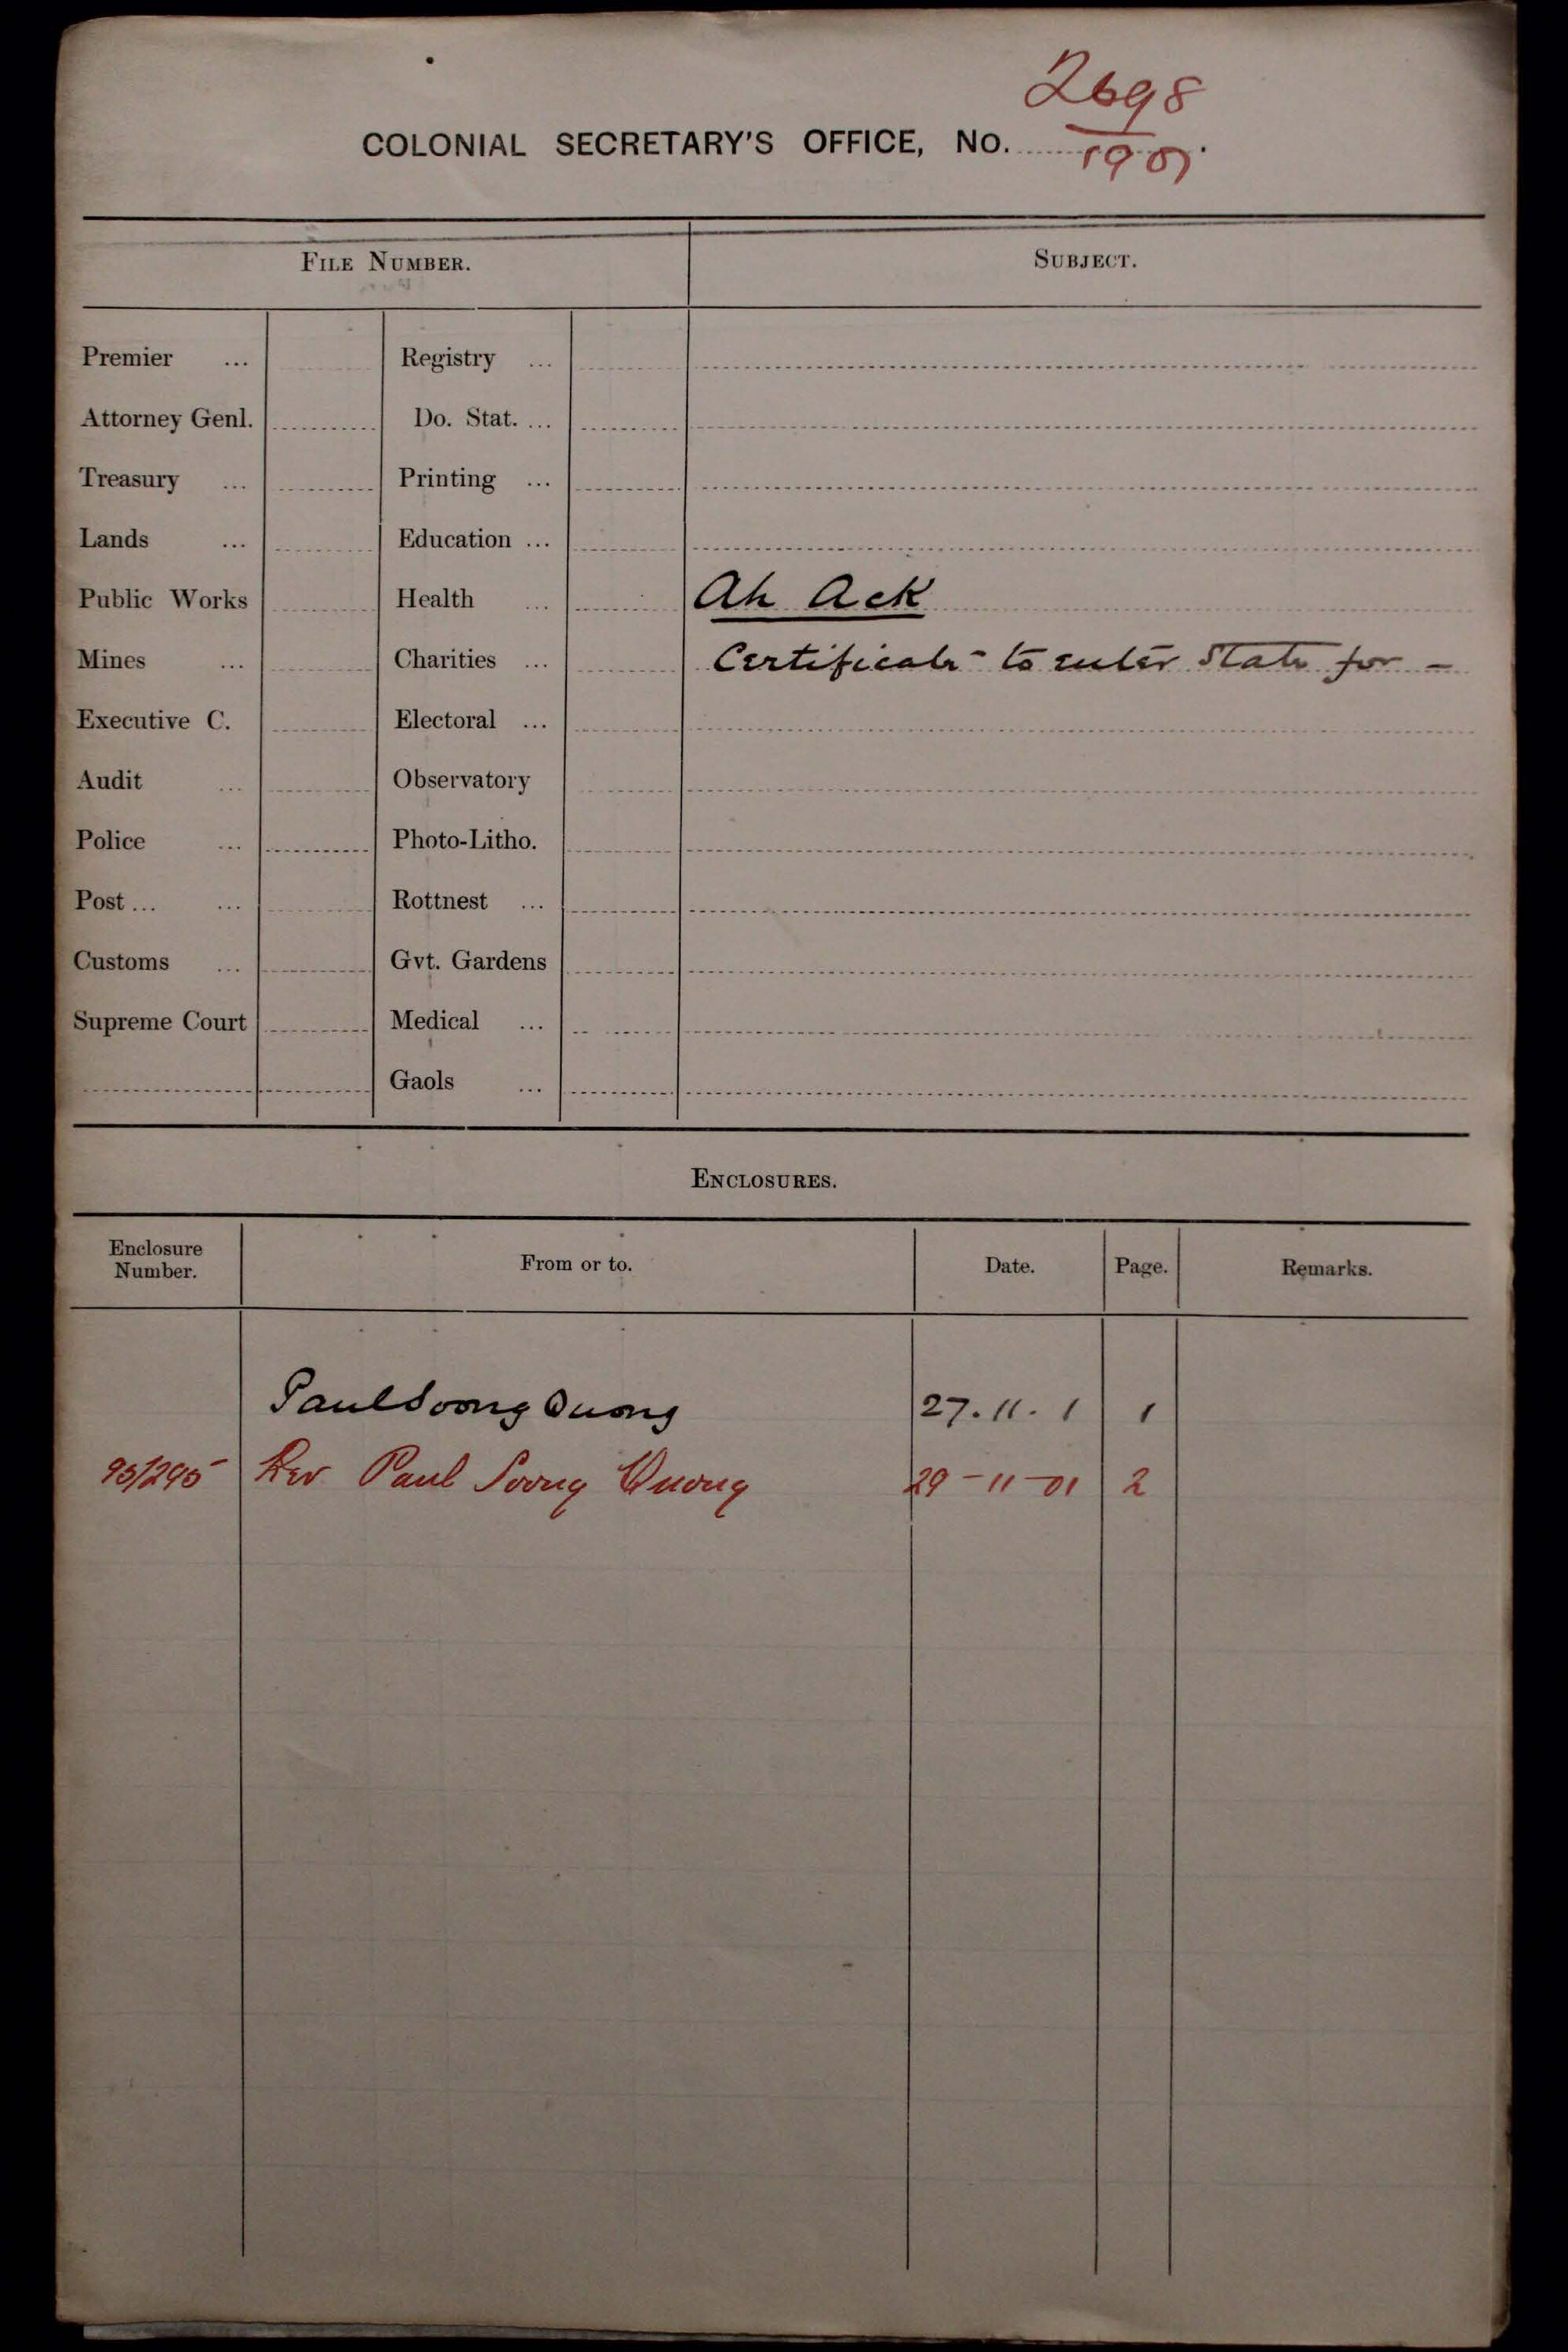 2698
COLONIAL SECRETARY'S OFFICE, NO. 1901.
FILE NUMBER. SUBJECT.
Premier ... Registry ...
Attorney Genl. Do. Stat. ...
Treasury ... Printing ...
Lands ... Education ...
Public Works Health ... Ah Ack
Mines ... Charities ... Certificate to enter State for -
Executive C. Electoral ...
Audit ... Observatory
Police ... Photo-Litho.
Post ... ... Rottnest ...
Customs ... Gvt. Gardens
Supreme Court Medical ...
Gaols ...
ENCLOSURES.
Enclosure Number. From or to. Date. Page. Remarks.
Paul Soong Quong 27.11.1 1
95/295 Rev Paul Soong Quong 29-11-01 2